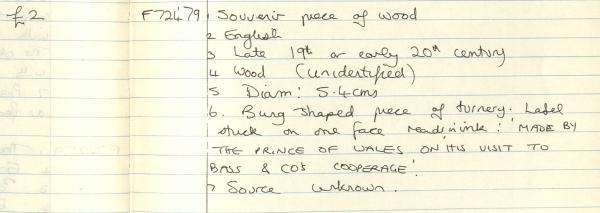 £2 F72479 1 Souvenir piece of wood
2 English
3 Late 19th or early 20th century
4 Wood (unidentified)
5 Diam: 5.4cms
6. Bung shaped piece of turnery. Label
stuck on one face reads in ink: 'MADE BY
THE PRINCE OF WALES ON HIS VISIT TO
BASS & CO'S COOPERAGE'.
7 Source unknown.